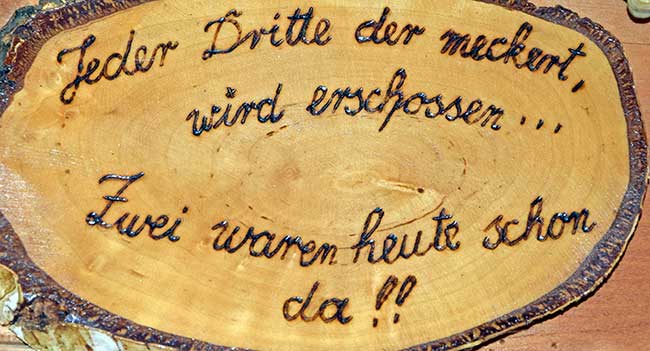 Jeder Dritte der meckert,
wird erschossen...
Zwei waren heute schon
da!!